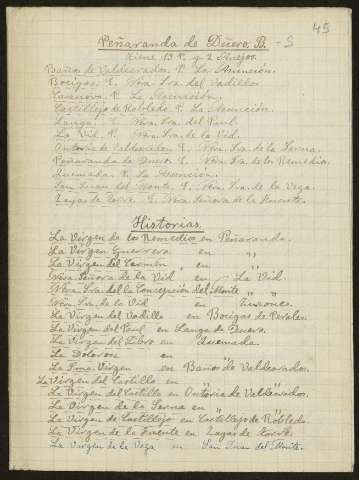 45
Peñaranda de Duero. B. - S
Tiene 13 P. y 2 Anejos.
Baños de Valdearados. P. La Asunción.
Bocigas. E. Ntra. Sra. del Vadillo
Casanova. P. La Ascensión.
Castillejo de Robledo P. La Asunción.
Langa. E. Ntra. Sra. del Paul.
La Vid. P. Ntra. Sra. de la Vid.
Ontoria de Valdearados. E. Ntra. Sra. de la Serna.
Peñaranda de Duero. E. Ntra. Sra. de los Remedios.
Quemada. P. La Asunción.
San Juan del Monte. E. Ntra. Sra. de la Vega.
Zayas de Torre. E. Ntra. Señora de la Fuente.
Historias.
La Virgen de los Remedios en Peñaranda.
La Virgen Guerrera en "
La Virgen del Carmen en "
Ntra. Señora de la Vid en La Vid.
Ntra. Sra. de la Concepción del Monte "
Ntra. Sra. de la Vid en
La Virgen del Vadillo en Bocigas de Perales.
La Virgen del Paul en Langa de Duero.
La Virgen del Libro en Quemada.
La Dolorosa en "
La Virgen en Baños de Valdearados.
La Virgen del Castillo en "
La Virgen del Castillo en Ontoria de Valdearados.
La Virgen de la Serna en "
La Virgen de Castillejo en Castillejo de Robledo.
La Virgen de la Fuente en Zayas de Torre.
La Virgen de la Vega en San Juan del Monte.